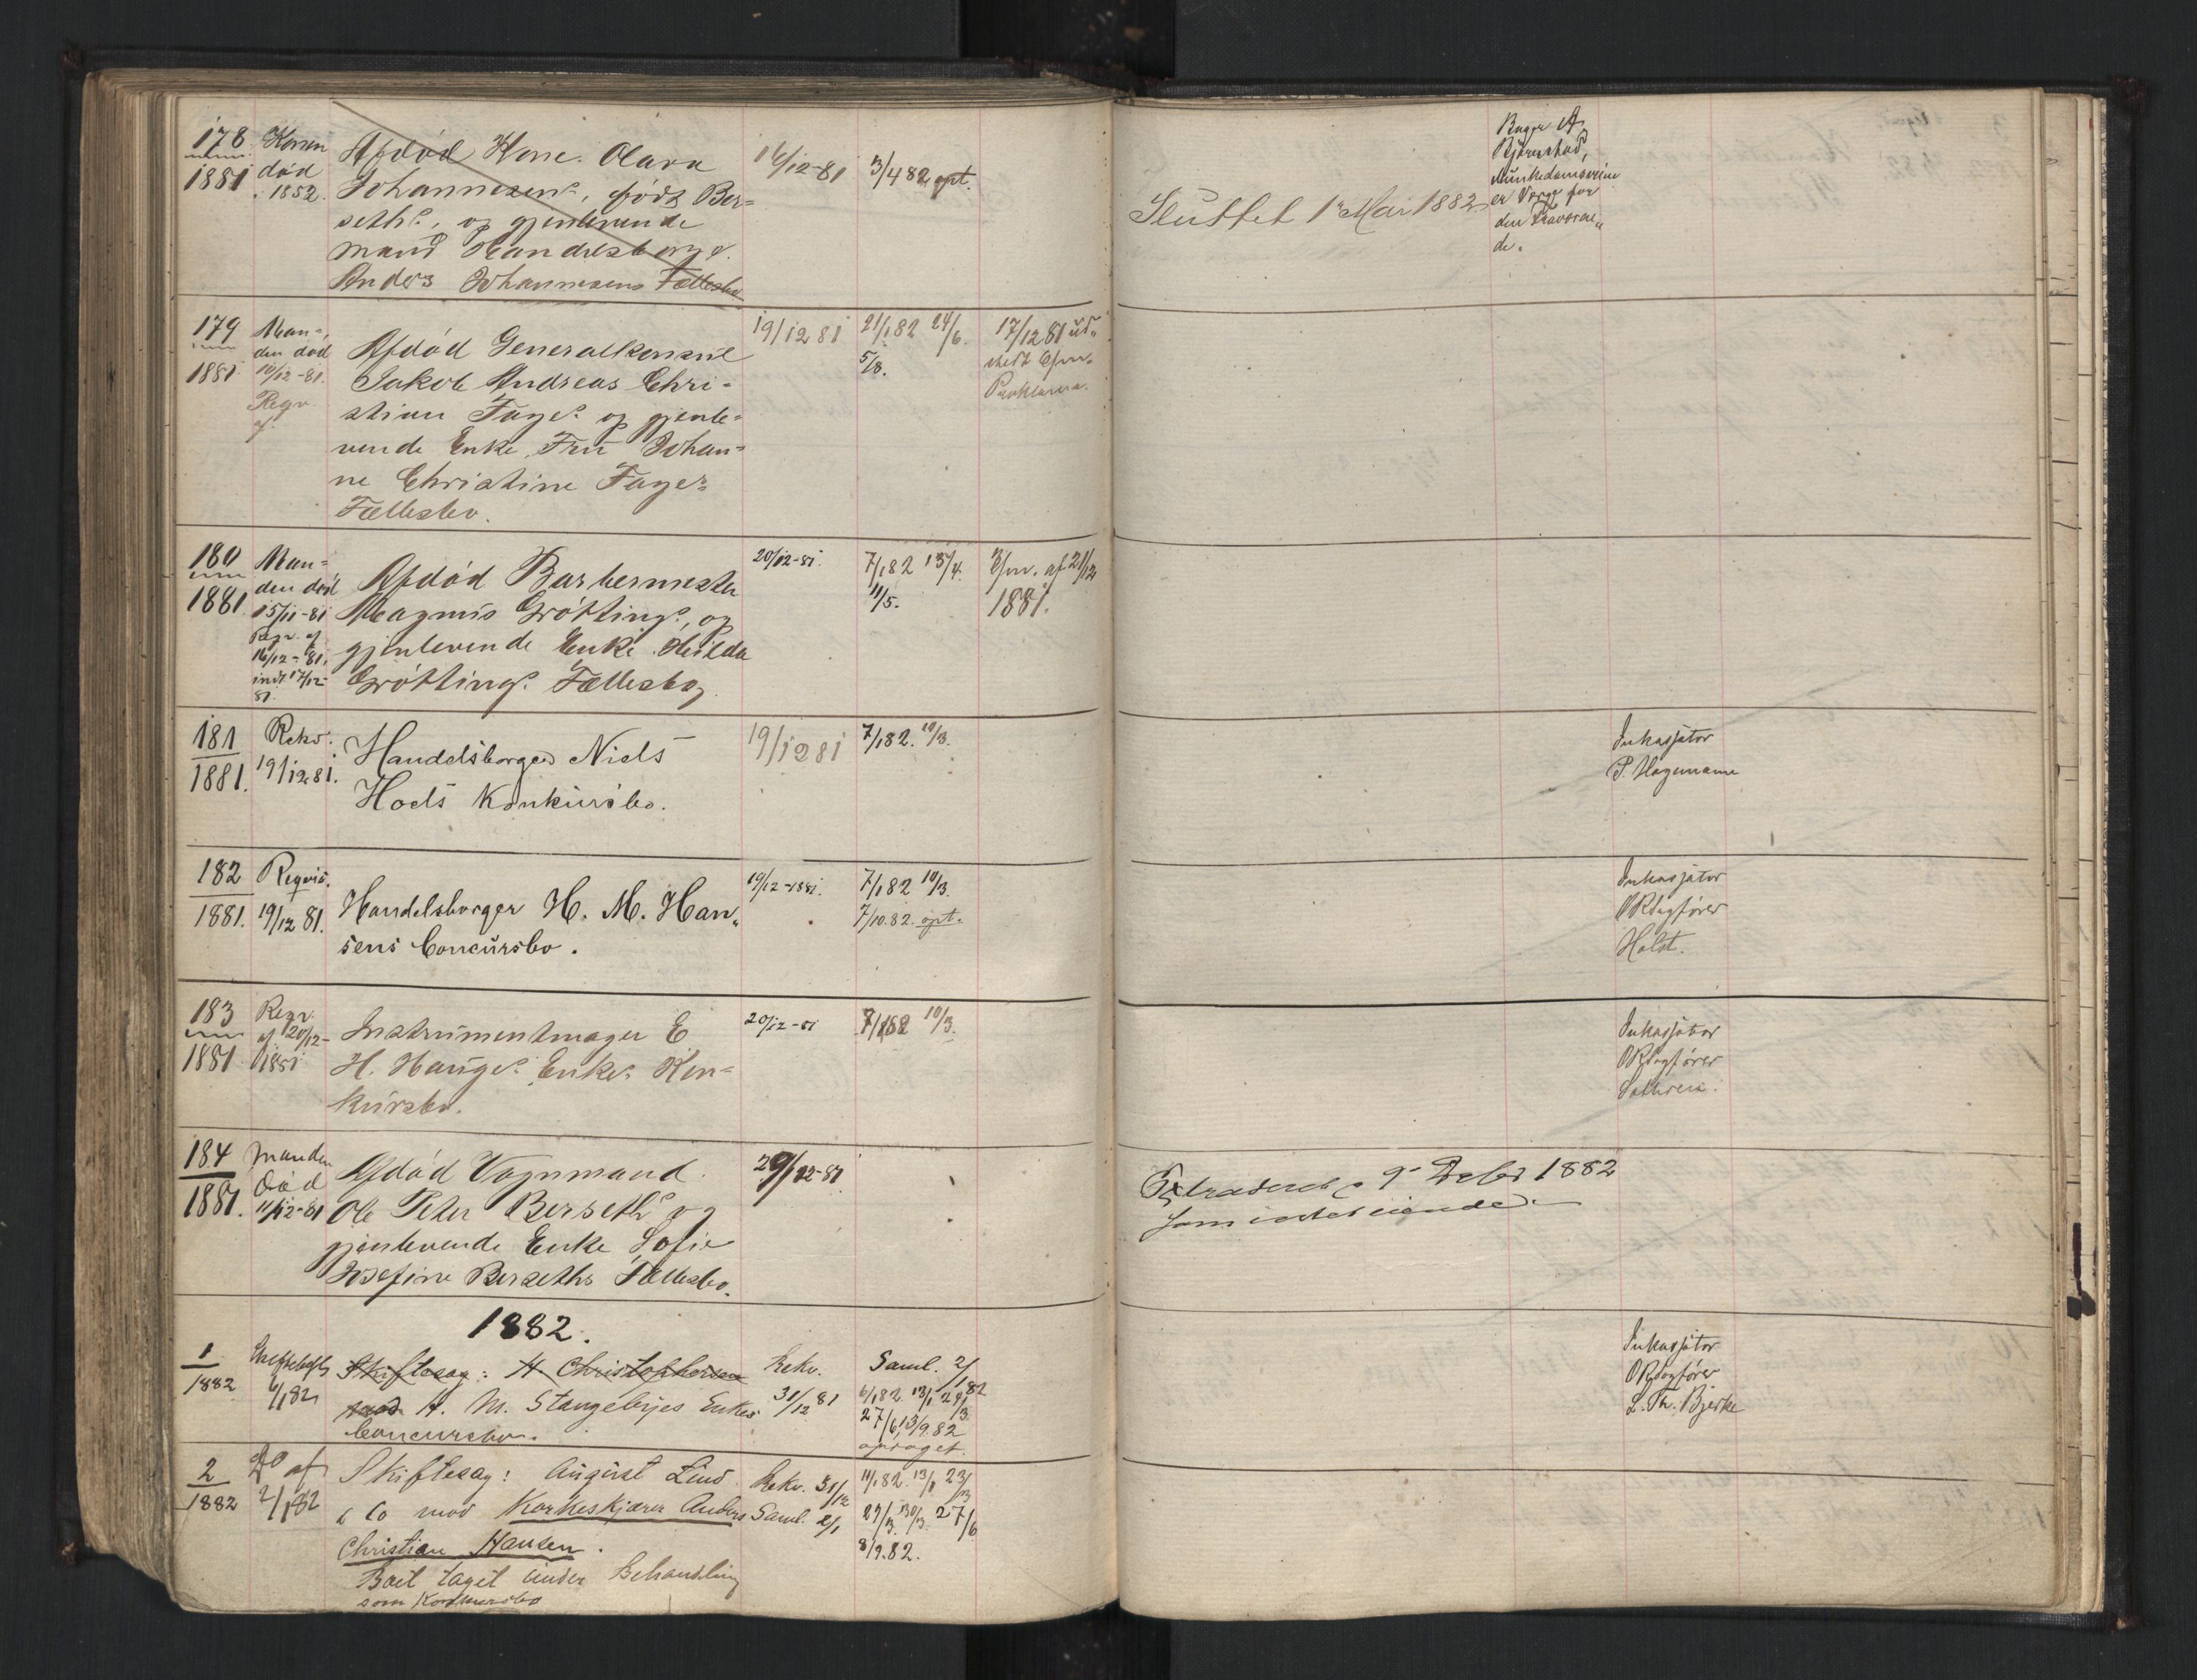 178
1881
Konen
død
1852.
Afdød Kone Olava
Johannesens, født Ber=
seths, og gjenlevende
mand Handelsborger
Anders Johannesens Fællesbo
16/12-81
3/4 82 opt.
Sluttet 1ste Mai 1882
Bager A.
Bjørnstad,
Munkedamsveien
er Værge for
den Fraværen„
de.
179
1881
Man=
den død
10/12-81.
Reqv.
af
Afdød Generalkonsul
Jakob Andreas Chri=
stian Fages og gjenle=
vende Enke, Fru Johan=
ne Christine Fages
Fællesbo.
19/12 81
21/1 82 24/6.
5/8.
17/12 81 ud„
stedt 6/m.
Proklama.
180
1881.
Man=
den død
15/11-81
Reqv. af
16/12-81.
indk 17/12-
81.
Afdød Barbermester
Magnus Grøttings, og
gjenlevende Enke Hilda
Grøttings Fællesbo
20/12-81.
7/1 82 13/4.
11/5.
3/m. af 21/12
1881.
181
1881.
Rekv.
19/12 81.
Handelsborger Niels
Hoels Konkursbo.
19/12 81
7/1 82. 10/3.
Inkassator
P. Hagemann
182
1881.
Reqvis.
19/12 81.
Handelsborger H. M. Han„
sens Concursbo.
19/12-1881.
7/1 82 10/3.
7/10. 82. opt.
Inkassator
ORsagfører
Holst.
183
1881
Reqv.
af 20/12-
1881
Instrumentmager E
H. Hauges Enkes Kon=
kursbo.
20/12-81
7/1 82 10/3.
Inkassator
ORsagfører
184
1881.
Manden
død
11/12-81
Afdød Vognmand
Ole Peter Berseths og
gjenlevende Enke Sofie
Josefine Berseths Fællesbo.
29/12-81
Extraderet 9de Decbr 1882
som intet eiende
1882.
1
1882
6/1 82
Skiftesag: H Christophersen
mod A. M. Stangebyes Enkes
Concursbo.
Rekv.
31/12 81
Saml. 2/1 82
6/1 82. 13/1 29/3
27/6, 13/9. 82
optaget.
Inkassator
ORsagfører
L. Th. Bjerke
2
1882
Do af
2/1 82
Skiftesag: August Lind
& Co mod Korkeskjærer Anders
Christian Hansen.
Boet taget under Behandling
som Konkursbo
Rekv. 31/12
Saml. 2/1
11/1 82. 13/1 23/3
29/3. 30/3. 27/6
8/9. 82.